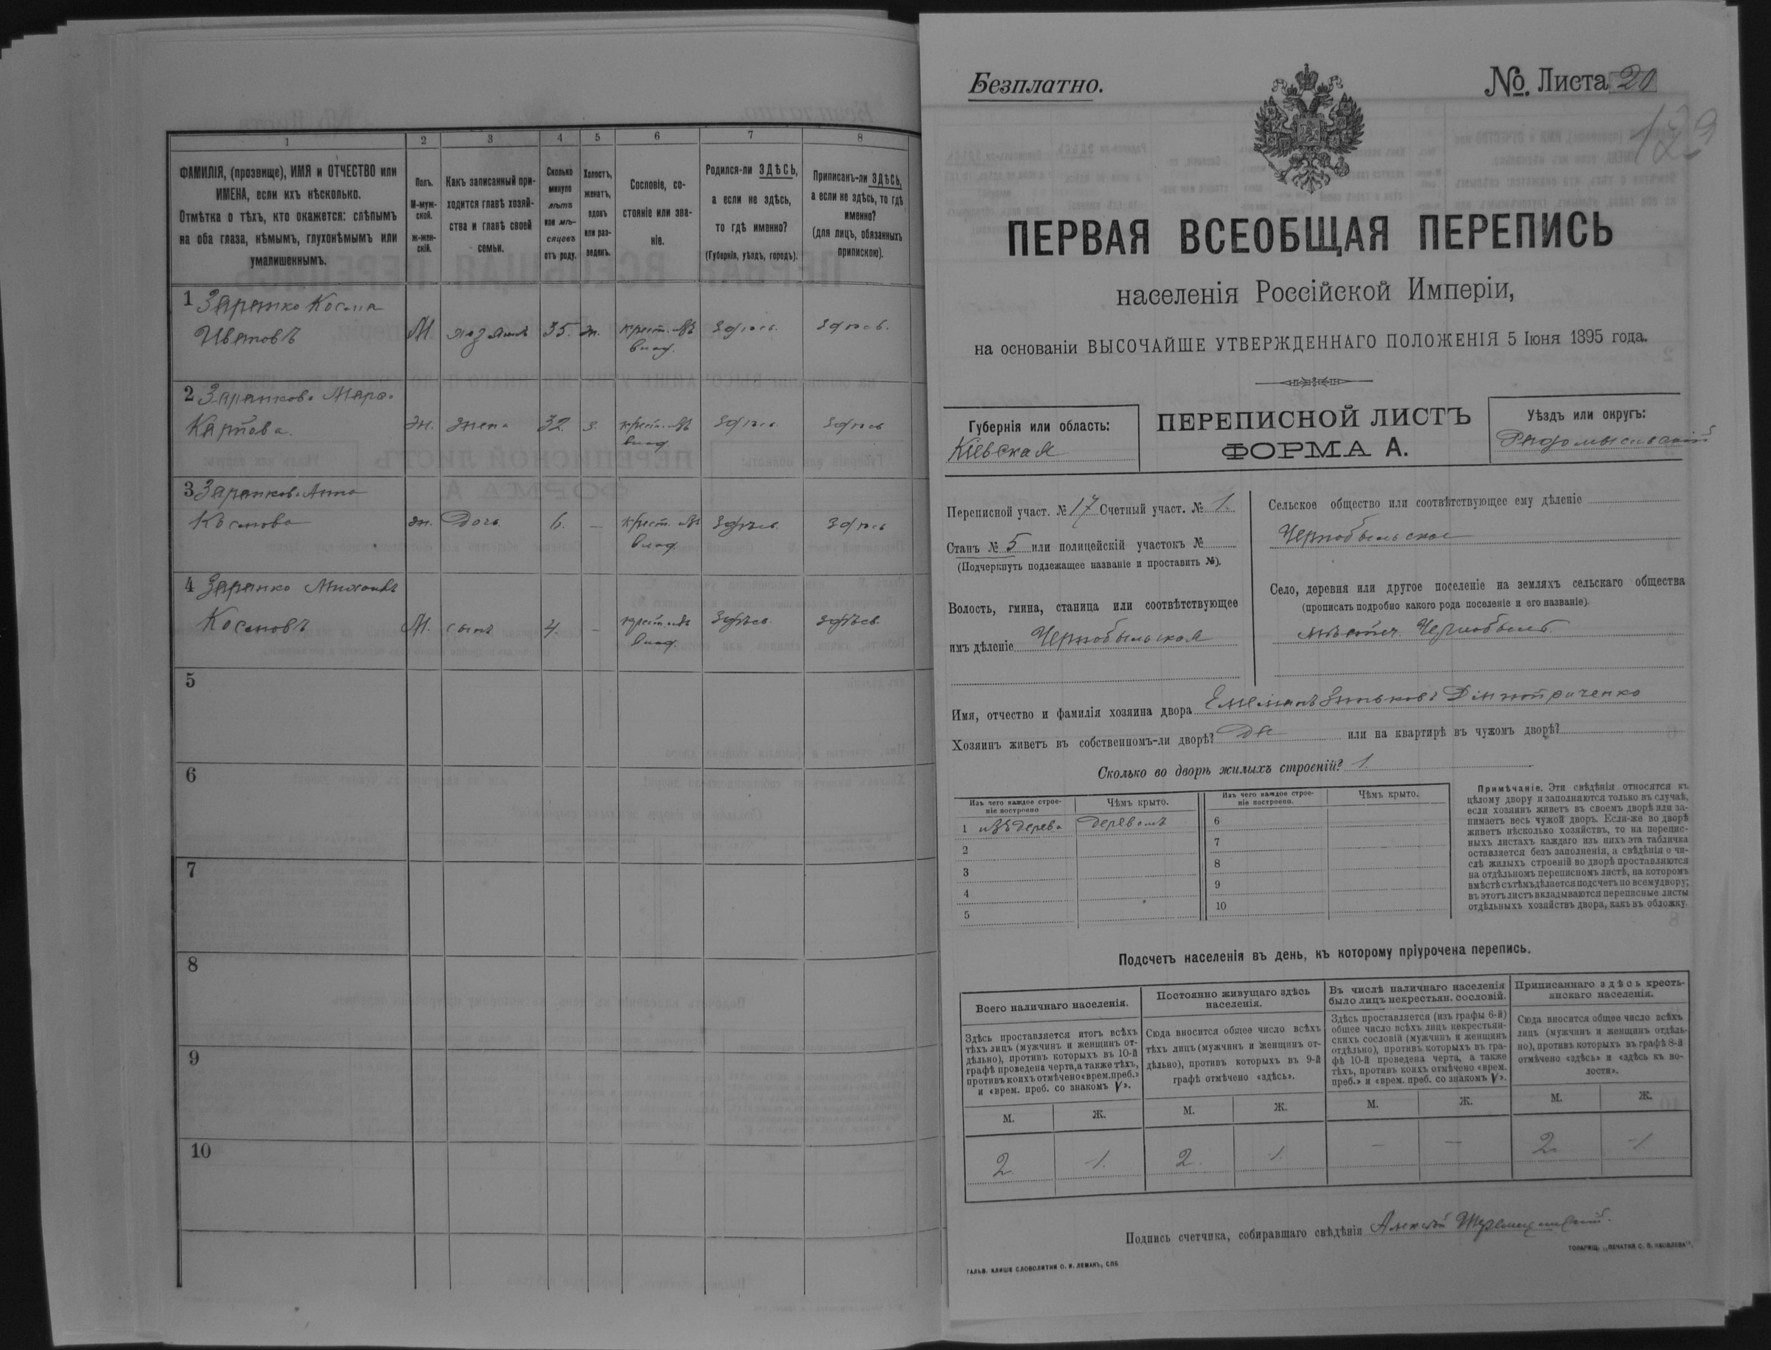 1
2
3
4
5
6
7
8
ФАМИЛІЯ, (прозвище), ИМЯ и ОТЧЕСТВО или
ИМЕНА, если ихъ нѣсколько.
Отмѣтка о тѣхъ, кто окажется: слѣпымъ
на оба глаза, нѣмымъ, глухонѣмымъ или
умалишеннымъ.
Полъ.
М-муж-
ской.
ж-жен-
скій.
Какъ записанный при-
ходится главѣ хозяй-
ства и главѣ своей
семьи.
Сколько
минуло
лѣтъ
или мѣ-
сяцевъ
отъ роду.
Холостъ,
женатъ,
вдовъ
или раз-
веденъ.
Сословіе, со-
стояніе или зва-
ніе.
Родился-ли ЗДѢСЬ,
а если не здѣсь,
то гдѣ именно?
(Губернія, уѣздъ, городъ).
Приписанъ-ли ЗДѢСЬ,
а если не здѣсь, то гдѣ
именно?
(для лицъ, обязанныхъ
припискою).
1
Ивановъ М. 35. ж. крест. здѣсь. здѣсь.
2
Карпова. ж. жена 32 з. здѣсь здѣсь
3
ж. Дочь 6. — крест. здѣсь. здѣсь
4
М. сынъ 4. — здѣсь. здѣсь.
5
6
7
8
9
10
Безплатно.
№. Листа 20
129
ПЕРВАЯ ВСЕОБЩАЯ ПЕРЕПИСЬ
населенія Россійской Имперіи,
на основаніи ВЫСОЧАЙШЕ УТВЕРЖДЕННАГО ПОЛОЖЕНІЯ 5 Іюня 1895 года.
Губернія или область:
Кіевская
ПЕРЕПИСНОЙ ЛИСТЪ
ФОРМА А.
Уѣздъ или округъ:
Радомысльскій
Переписной участ. № 17 Счетный участ. № 1.
Станъ № 5 или полицейскій участокъ №
(Подчеркнуть подлежащее названіе и проставить №).
Волость, гмина, станица или соотвѣтствующее
имъ дѣленіе Чернобыльская
Сельское общество или соотвѣтствующее ему дѣленіе
Чернобыльское
Село, деревня или другое поселеніе на земляхъ сельскаго общества
(прописать подробно какого рода поселеніе и его названіе).
мѣстеч. Чернобыль.
Имя, отчество и фамилія хозяина двора
Хозяинъ живетъ въ собственномъ-ли дворѣ? да или на квартирѣ въ чужомъ дворѣ?
Сколько во дворѣ жилыхъ строеній? 1.
Изъ чего каждое строе-
ніе построено
Чѣмъ крыто.
Изъ чего каждое строе-
ніе построено.
Чѣмъ крыто.
1 изъ дерева деревомъ
2
3
4
5
6
7
8
9
10
Примѣчаніе. Эти свѣдѣнія относятся къ
цѣлому двору и заполняются только въ случаѣ,
если хозяинъ живетъ въ своемъ дворѣ или за-
нимаетъ весь чужой дворъ. Если-же во дворѣ
живетъ нѣсколько хозяйствъ, то на перепис-
ныхъ листахъ каждаго изъ нихъ эта табличка
оставляется безъ заполненія, а свѣдѣнія о чи-
слѣ жилыхъ строеній во дворѣ проставляются
на отдѣльномъ переписномъ листѣ, на которомъ
вмѣстѣ съ тѣмъ дѣлается подсчетъ по всему двору;
въ этотъ листъ вкладываются переписные листы
отдѣльныхъ хозяйствъ двора, какъ въ обложку.
Подсчетъ населенія въ день, къ которому пріурочена перепись.
Всего наличнаго населенія.
Постоянно живущаго здѣсь
населенія.
Въ числѣ наличнаго населенія
было лицъ некрестьян. сословій.
Приписаннаго здѣсь кресть-
янскаго населенія.
Здѣсь проставляется итогъ всѣхъ
тѣхъ лицъ (мужчинъ и женщинъ от-
дѣльно), противъ которыхъ въ 10-й
графѣ проведена черта, а также тѣхъ,
противъ коихъ отмѣчено «врем. преб.»
и «врем. преб. со знакомъ V».
Сюда вносится общее число всѣхъ
тѣхъ лицъ (мужчинъ и женщинъ от-
дѣльно), противъ которыхъ въ 9-й
графѣ отмѣчено «здѣсь».
Здѣсь проставляется (изъ графы 6-й)
общее число всѣхъ лицъ некрестьян-
скихъ сословій (мужчинъ и женщинъ
отдѣльно), противъ которыхъ въ гра-
фѣ 10-й проведена черта, а также
тѣхъ, противъ коихъ отмѣчено «врем.
преб.» и «врем. преб. со знакомъ V».
Сюда вносится общее число всѣхъ
лицъ (мужчинъ и женщинъ отдѣль-
но), противъ которыхъ въ графѣ 8-й
отмѣчено «здѣсь» и «здѣсь въ во-
лости».
М. Ж. М. Ж. М. Ж. М. Ж.
2 1. 2. 1. — — 2. 1.
Подпись счетчика, собиравшаго свѣдѣнія
ГАЛЬВ. КЛИШЕ СЛОВОЛИТНИ О. И. ЛЕМАНЪ, СПБ
ТОВАРИЩ. „ПЕЧАТНЯ С. П. ЯКОВЛЕВА".